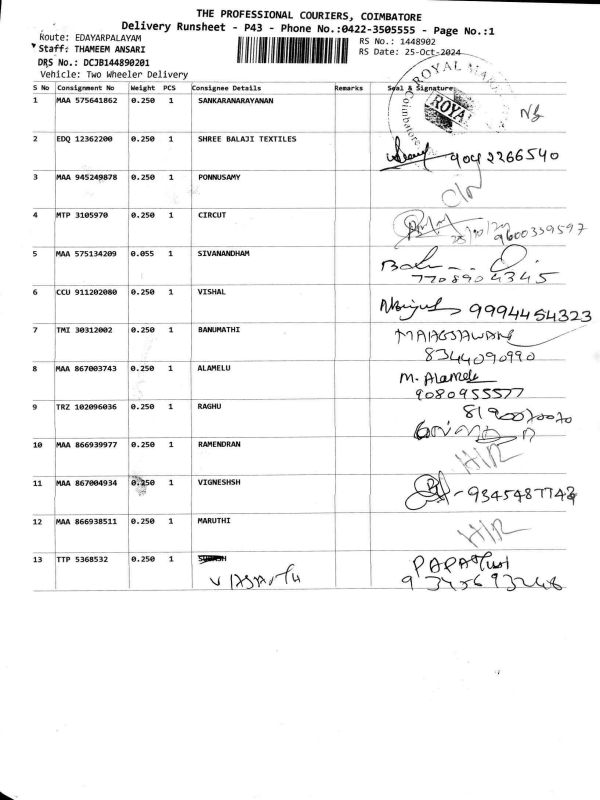 THE PROFESSIONAL COURIERS, COIMBATORE
Delivery Runsheet - P43 - Phone No.:0422-3505555 - Page No.:1
Route: EDAYARPALAYAM
RS No.: 1448902
Staff: THAMEEM ANSARI
RS Date: 25-Oct-2024
DRS No.: DCJB144890201
Vehicle: Two Wheeler Delivery
S No Consignment No Weight PCS Consignee Details Remarks Seal & Signature
1 MAA 575641862 0.250 1 SANKARANARAYANAN
ROYAL
ROYAL
Coimbatore
2 EDQ 12362200 0.250 1 SHREE BALAJI TEXTILES
9042266540
3 MAA 945249878 0.250 1 PONNUSAMY
4 MTP 3105970 0.250 1 CIRCUT
9600339597
5 MAA 575134209 0.055 1 SIVANANDHAM
7708904345
6 CCU 911202080 0.250 1 VISHAL
9994454323
7 TMI 30312002 0.250 1 BANUMATHI
8344090990
8 MAA 867003743 0.250 1 ALAMELU
M. Alamelu
9080955577
9 TRZ 102096036 0.250 1 RAGHU
8190070070
10 MAA 866939977 0.250 1 RAMENDRAN
H/R
11 MAA 867004934 0.250 1 VIGNESHSH
12 MAA 866938511 0.250 1 MARUTHI
H/R
13 TTP 5368532 0.250 1